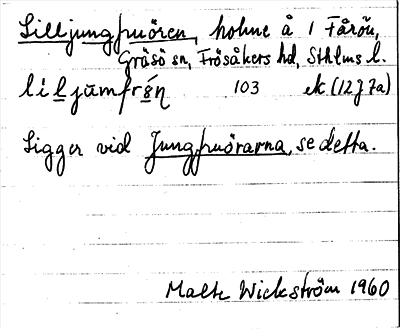 Lilljungfruören, holme å 1 Fårön,
Gräsö sn, Frösåkers hd, Sthlms l.
lìljùmfrǿ́n 103 ek (12j7a)
Ligger vid Jungfruörarna, se detta.
Malte Wickström 1960